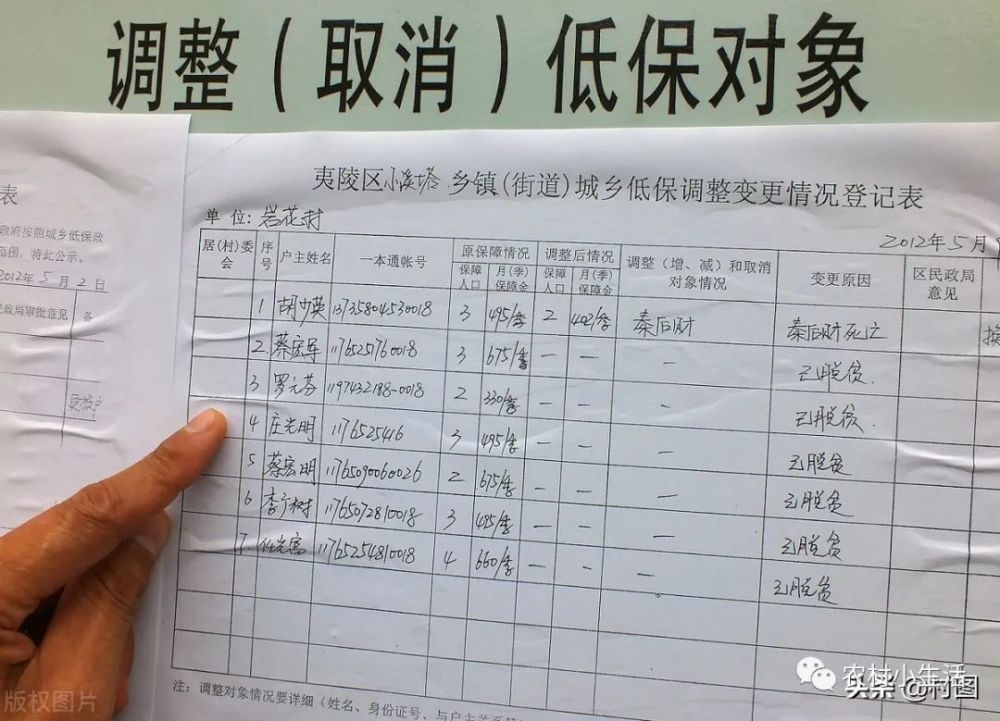 调整（取消）低保对象
表
政府按照城乡低保政
范围，特此公示。
2012年5月2日
民政局审批意见 备
夷陵区小溪塔乡镇(街道)城乡低保调整变更情况登记表
单位：岩花村
2012年5月
居(村)委会 序号 户主姓名 一本通帐号 原保障情况 调整后情况 调整（增、减）和取消对象情况 变更原因 区民政局意见
保障人口 月(季)保障金 保障人口 月(季)保障金
1 胡少英 13735804530018 3 495/季 2 402/季 秦后财 秦后财死亡
2 蔡宏军 1176525760018 3 675/季 — — — 已脱贫.
3 罗元芬 1197432188-0018 2 330/季 — — — 已脱贫.
4 庄光明 1176525416 3 495/季 — — — 已脱贫
5 蔡宏明 1176509006 0026 2 675/季 — — — 已脱贫
6 李 树 11765072810018 3 495/季 — — — 已脱贫
7. 任光富 11765254810018 4 660/季 — - — 已脱贫
注：调整对象情况要详细（姓名、身份证号、与户主关系
版权图片
农村小生活
头条 @村图